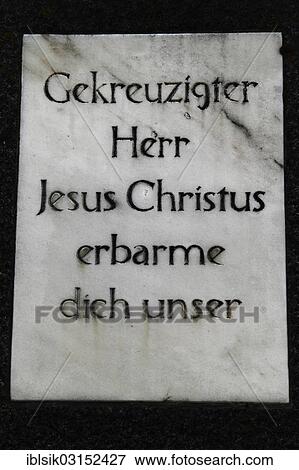 Gekreuzigter
Herr
Jesus Christus
erbarme
dich unser
FOTOSEARCH
iblsik03152427 www.fotosearch.com